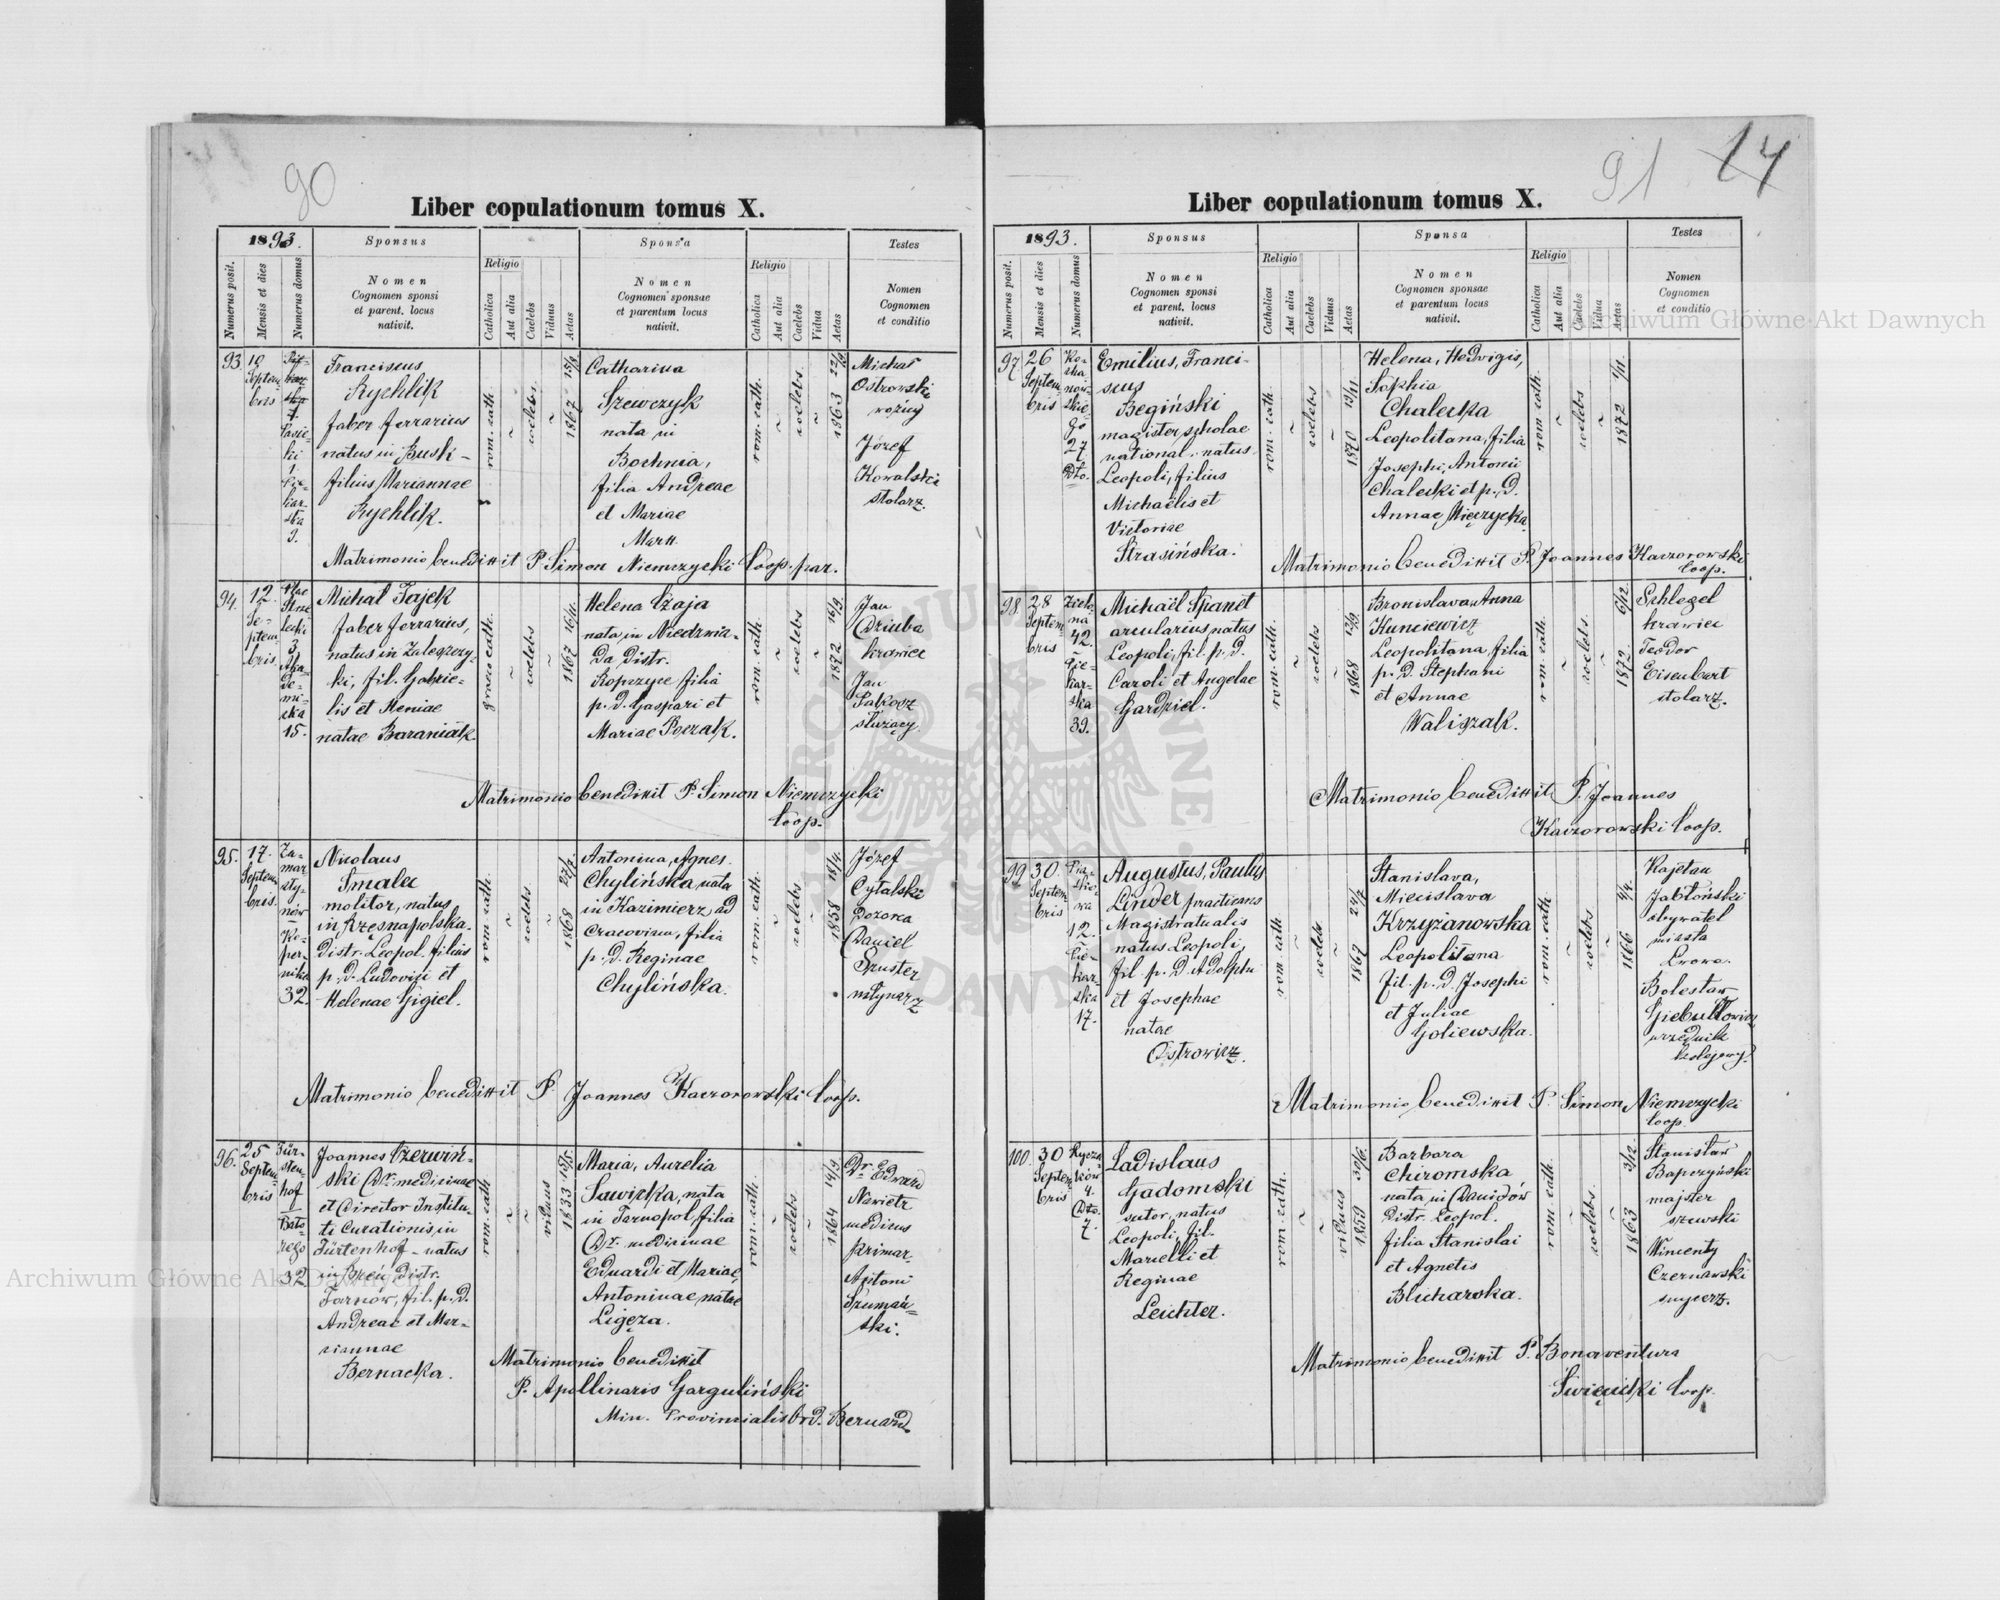 90
Liber copulationum tomus X.
1893.
Sponsus
Sponsa
Testes
Numerus posit.
Mensis et dies
Numerus domus
Nomen
Cognomen sponsi
et parent. locus
nativit.
Religio
Catholica
Aut alia
Caelebs
Viduus
Aetas
Nomen
Cognomen sponsae
et parentum locus
nativit.
Religio
Catholica
Aut alia
Caelebs
Vidua
Aetas
Nomen
Cognomen
et conditio
93.
10
Septem
bris
Franciscus
Rychlik
faber ferrarius
natus in Busk -
filius Mariannae
Rychlik.
rom. cath.
coelebs
1867
Catharina
Szewczyk
nata in
Bochnia,
filia Andreae
et Mariae
rom. cath.
coelebs
1863 22/9
Michał
Ostrowski
woźny
Józef
Kowalski
stolarz
Matrimonio benedixit P. Simon Niemczycki Coop. par.
94.
12
Se-
ptem
bris
3
15.
Michał Fajek
faber ferrarius,
natus in Zaleszczy-
ki, fil. Gabrie-
lis et Xeniae
natae Baraniak
graeco cath.
coelebs
1867 16/11
Helena Czaja
nata in Niedzwia-
da Distr.
Ropczyce filia
p. d. Gaspari et
Mariae Poczak.
rom. cath.
coelebs
1872 16/9
Jan
Dziuba
krawiec
Jan
służący
Matrimonio benedixit P. Simon Niemczycki
Coop.
95.
17.
Septem
bris.
Za-
mar
sty-
nów
Ko-
per-
nika
32
Nicolaus
Smalec
molitor, natus
in Rzęsnapolska.
Distr. Leopol. filius
p. D. Ludovici et
Helenae Gigiel.
rom. cath.
coelebs
1868
Antonina, Agnes.
Chylińska nata
in Kazimierz ad
Cracoviam, filia
p. D. Reginae
Chylińska.
rom. cath.
coelebs
1858 18/4.
Józef
Cytalski
Dozorca
Daniel
Szuster
młynarz
Matrimonio benedixit P. Joannes Kaczorowski Coop.
96.
25
Septem
bris
Für-
sten-
hof
Bato-
rego
32
Joannes Czerwiń-
ski Dr. medicinae
et Director Institu-
ti Curationis in
Fürtenhof - natus
in Breń Distr.
Tarnów, fil. p. D.
Andreae et Mar-
iannae
Bernacka.
rom. cath
viduus
1833 15/5.
Maria, Aurelia
Sawicka, nata
in Tarnopol, filia
Dr. medicinae
Eduardi et Mariae,
Antoninae natae
Ligęza.
rom. cath.
coelebs
1864 14/9
Dr. Edward
medicus
primar.
Antoni
Szumań-
ski.
Matrimonio benedixit
P. Apollinaris Garguliński
Min. Provincialis Ord. Bernard.
91
14
Liber copulationum tomus X.
1893.
Sponsus
Sponsa
Testes
Numerus posit.
Mensis et dies
Numerus domus
Nomen
Cognomen sponsi
et parent. locus
nativit.
Religio
Catholica
Aut alia
Caelebs
Viduus
Aetas
Nomen
Cognomen sponsae
et parentum locus
nativit.
Religio
Catholica
Aut alia
Caelebs
Vidua
Aetas
Nomen
Cognomen
et conditio
97.
26
Septem
bris
27
Dto.
Emilius, Franci-
scus
Begiński
magister scholae
national. natus
Leopoli, filius
Michaëlis et
Victoriae
Strasińska.
rom. cath
coelebs
1870 19/11
Helena, Hedvigis,
Sophia
Chalecka
Leopolitana, filia
Josephi, Antonii
Chalecki et p. D.
Annae Mieczycka
rom. cath.
coelebs
1872
Matrimonio benedixit P. Joannes Kaczorowski
Coop.
98.
28
Septem
bris
Zielo-
na
42
Pie-
kar-
ska
39.
Michaël Spanet
arcularius, natus
Leopoli, fil. p. D.
Caroli et Angelae
Gardziel.
rom. cath.
coelebs
1868
Bronislava, Anna
Kuncewicz
Leopolitana, filia
p. D. Stephani
et Annae
Waliszak.
rom. cath.
coelebs.
1872. 6/12.
Schlegel
krawiec
Teodor
Eisenbert
stolarz.
Matrimonio benedixit P. Joannes
Kaczorowski Coop.
99
30
Septem
bris
12.
Pie-
kar-
ska
17.
Augustus, Paulus
Linder practicans
Magistratualis
natus Leopoli,
fil. p. D. Adolphi
et Josephae
natae
Ostrowicz.
rom. cath
coeleb
1867 24/7
Stanislava,
Miecislava
Krzyżanowska
Leopolitana
fil. p. D. Josephi
et Juliae
Goliewska.
rom. cath
coelebs
1866
Kajetan
Jabłoński
obywatel
miasta
Lwowa.
Bolesław
Giebułtowicz
urzędnik
kolejowy.
Matrimonio benedixit P. Simon Niemczycki
Coop.
100.
30
Septem
bris
4.
Dto.
7.
Ladislaus
Gadomski
sutor, natus
Leopoli, fil.
Marcelli et
Reginae
Leichter.
rom. cath.
viduus
1859 30/6.
Barbara
Chiromska
nata in Dawidów
Distr. Leopol.
filia Stanislai
et Agnetis
Blicharska.
rom. cath.
coelebs.
1863 3/12.
Stanisław
Bapczyński
majster
szewski
Wincenty
Czernawski
Matrimonio benedixit P. Bonaventura
Święcicki Coop.
Archiwum Główne Akt Dawnych
Archiwum Główne Akt Dawnych
ARCHIWUM GŁÓWNE AKT DAWNYCH